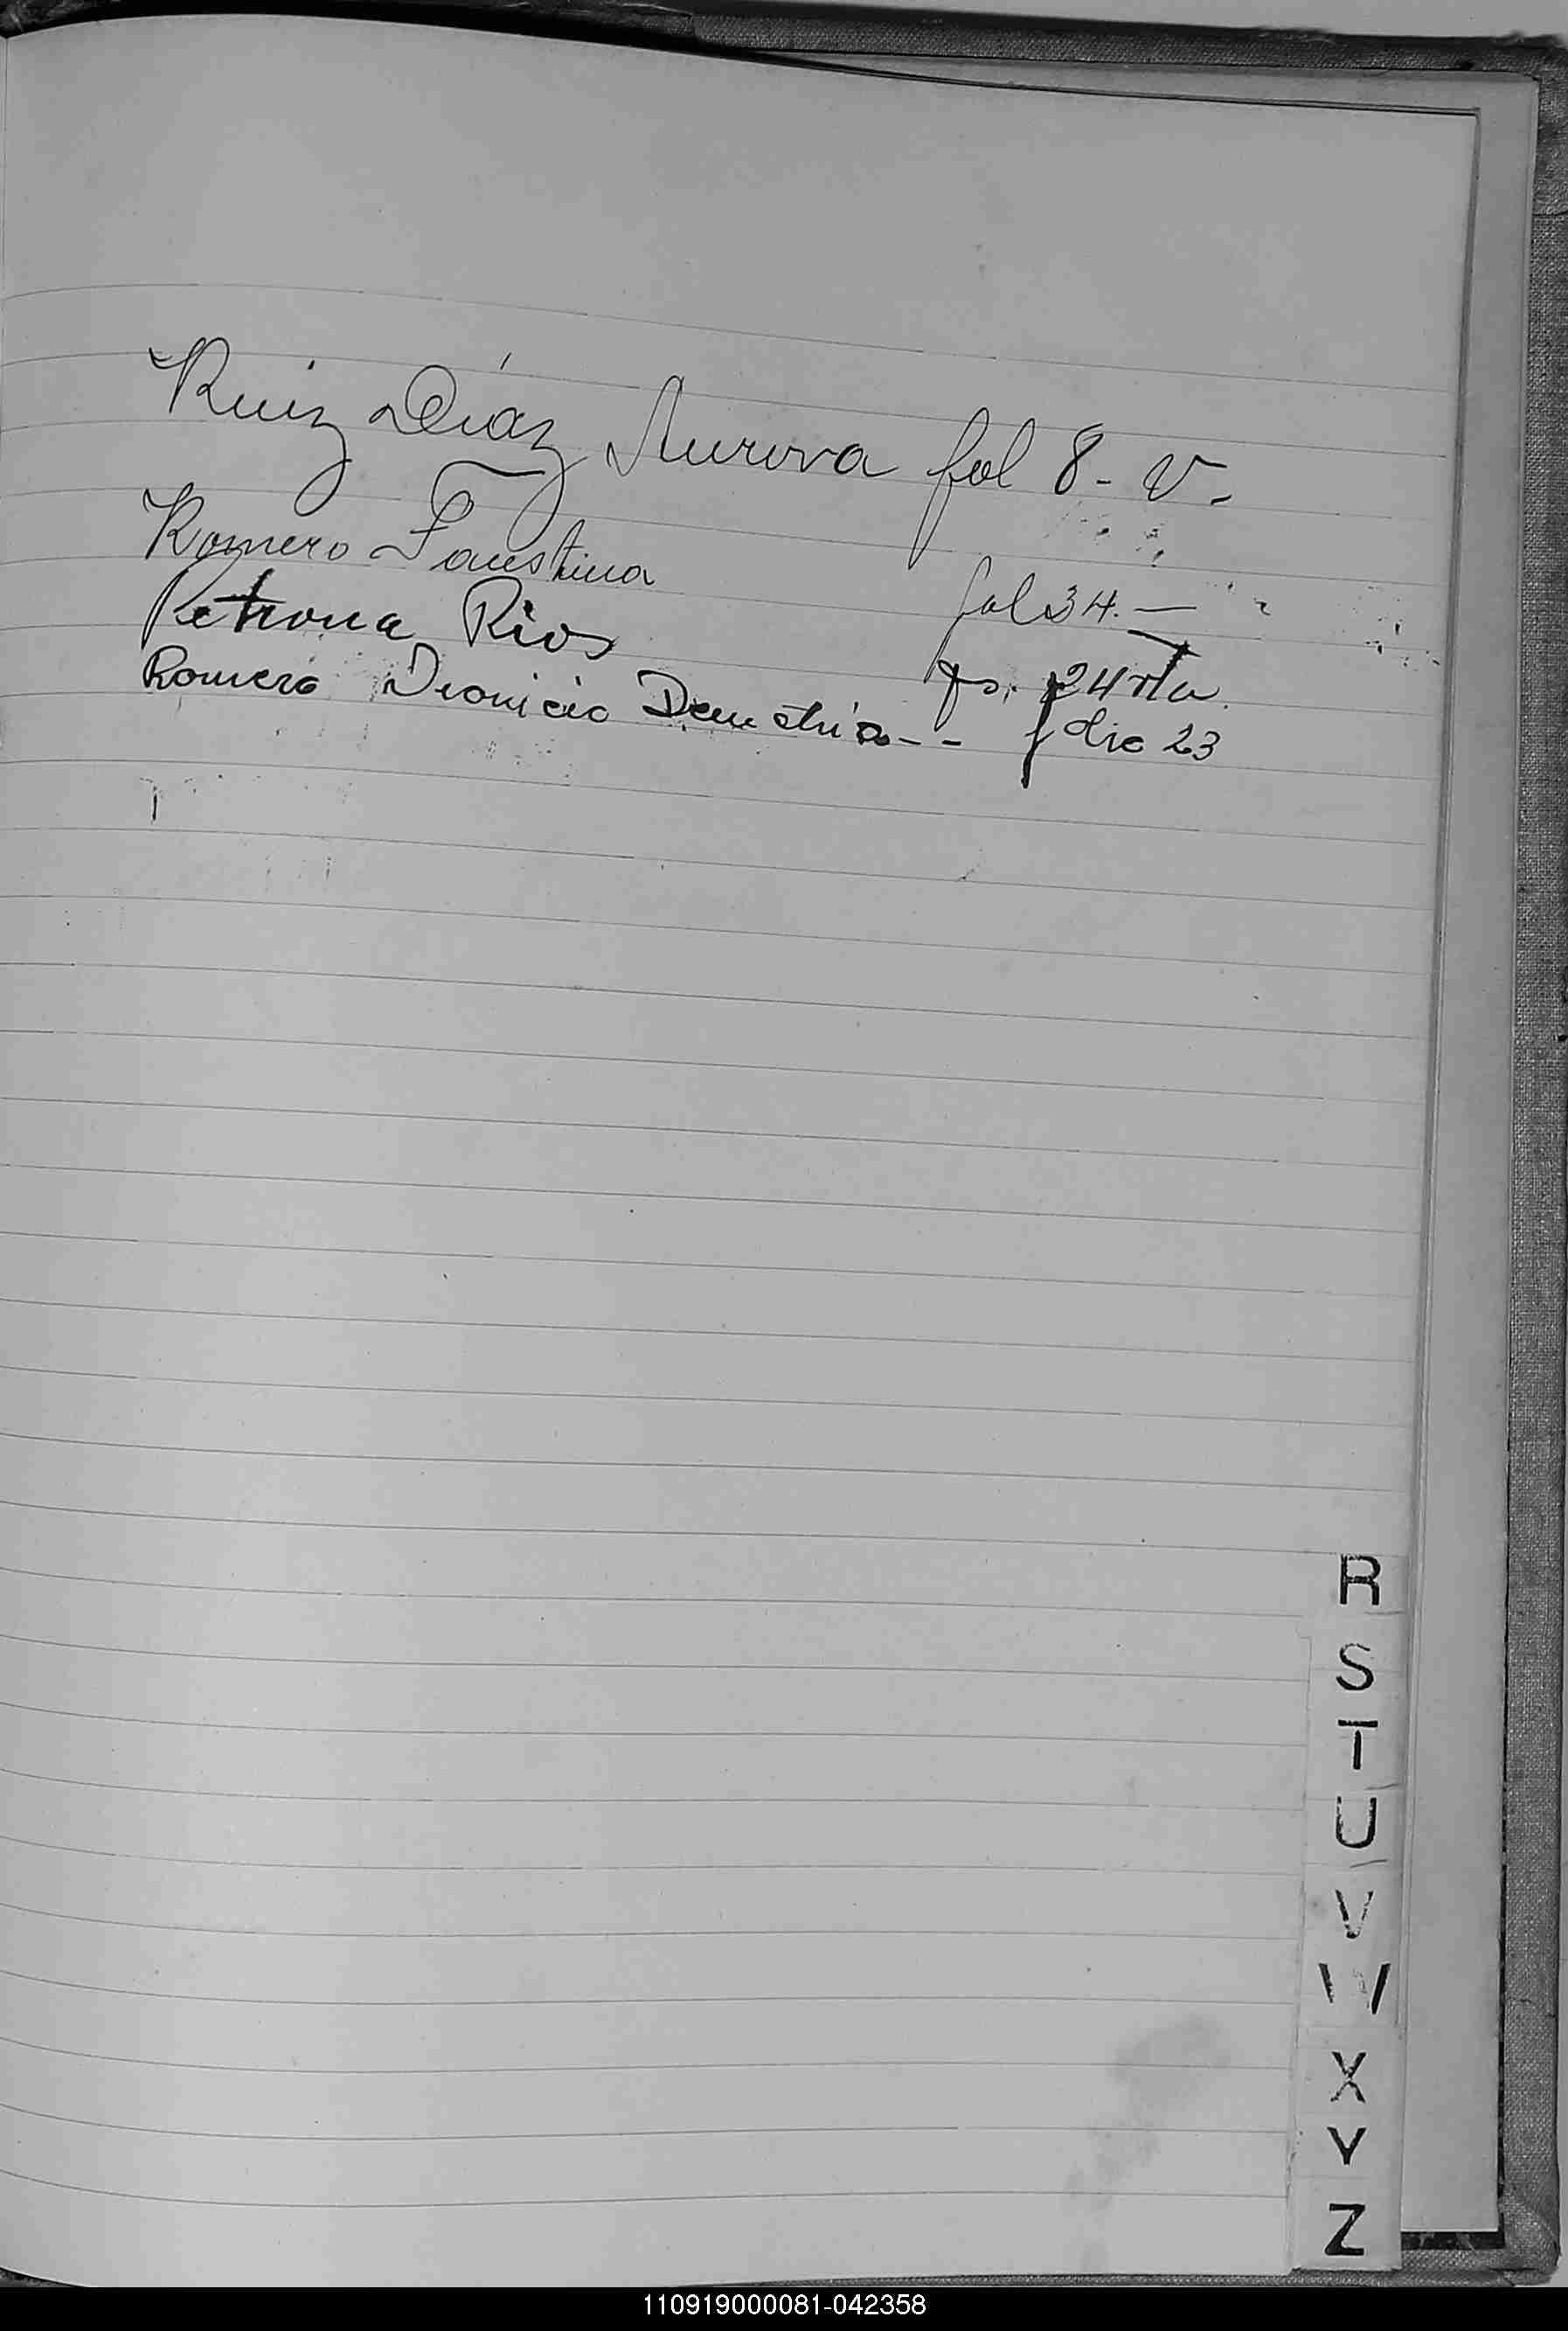 Ruiz Díaz Aurora fol 8 - V -
Romero Faustina fol 34. —
Petrona Rios fo. 24 vta.
Romero Dionicio Demetrio - - folio 23
R
S
T
U
V
W
X
Y
Z
110919000081-042358